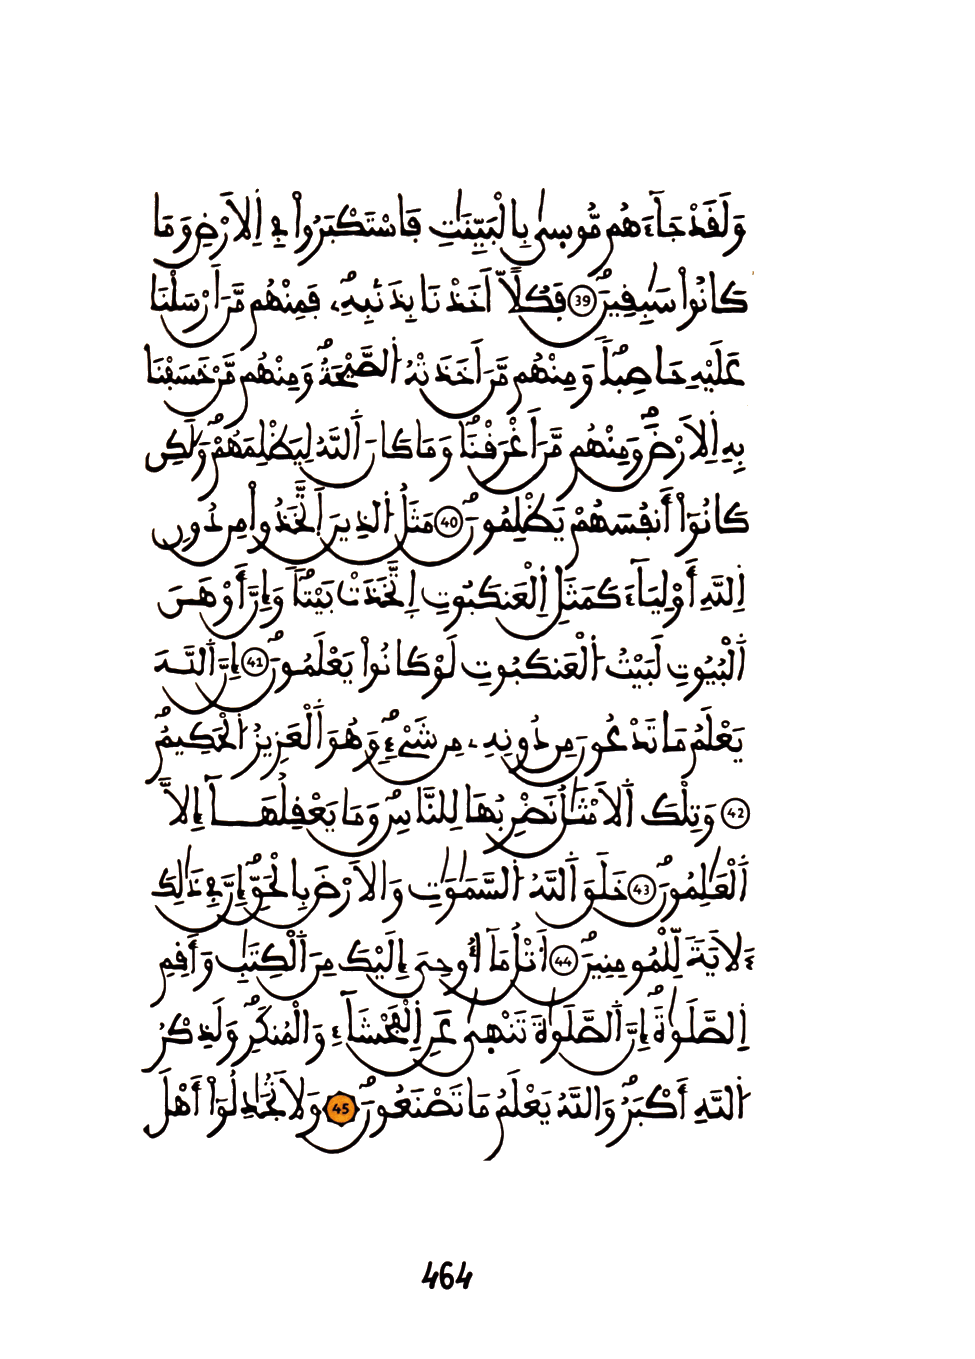 وَلَقَدْ جَآءَهُم مُّوسىٰ بِالْبَيِّنَٰتِ فَاسْتَكْبَرُواْ فِے اِلَارْضِ وَمَا
كَانُواْ سَٰبِقِينَۖ 39 فَكُلّاً اَخَذْنَا بِذَنۢبِهِۦۖ فَمِنْهُم مَّنَ اَرْسَلْنَا
عَلَيْهِ حَاصِباٗۖ وَمِنْهُم مَّنَ اَخَذَتْهُ اُلصَّيْحَةُۖ وَمِنْهُم مَّنْ خَسَفْنَا
بِهِ اِلَارْضَۖ وَمِنْهُم مَّنَ اَغْرَفْنَاۖ وَمَا كَانَ اَللَّهُ لِيَظْلِمَهُمْۖ وَلَٰكِن
كَانُوٓاْ أَنفُسَهُمْ يَظْلِمُونَۖ 40 مَثَلُ اُلذِينَ اَتَّخَذُواْ مِن دُونِ
اِللَّهِ أَوْلِيَآءَ كَمَثَلِ اِلْعَنكَبُوتِ اِتَّخَذَتْ بَيْتاٗۖ وَإِنَّ أَوْهَنَ
اَلْبُيُوتِ لَبَيْتُ اُلْعَنكَبُوتِ لَوْ كَانُواْ يَعْلَمُونَۖ 41 إِنَّ اَللَّهَ
يَعْلَمُ مَا تَدْعُونَ مِن دُونِهِۦ مِن شَےْءٖۖ وَهُوَ اَلْعَزِيزُ اُلْحَكِيمُۖ
42 وَتِلْكَ اَلَامْثَٰلُ نَضْرِبُهَا لِلنَّاسِۖ وَمَا يَعْقِلُهَآ إِلَّا
اَلْعَٰلِمُونَۖ 43 خَلَقَ اَللَّهُ اُلسَّمَٰوَٰتِ وَالَارْضَ بِالْحَقِّۖ إِنَّ فِے ذَٰلِكَ
ءَلَايَةٗ لِّلْمُومِنِينَۖ 44 اَتْلُ مَآ أُوحِيَ إِلَيْكَ مِنَ اَلْكِتَٰبِ وَأَقِمِ
اِلصَّلَوٰةَۖ إِنَّ اَلصَّلَوٰةَ تَنْهىٰ عَنِ اِلْفَحْشَآءِ وَالْمُنكَرِۖ وَلَذِكْرُ
اُللَّهِ أَكْبَرُۖ وَاللَّهُ يَعْلَمُ مَا تَصْنَعُونَۖ 45 وَلَا تُجَٰدِلُوٓاْ أَهْلَ
464